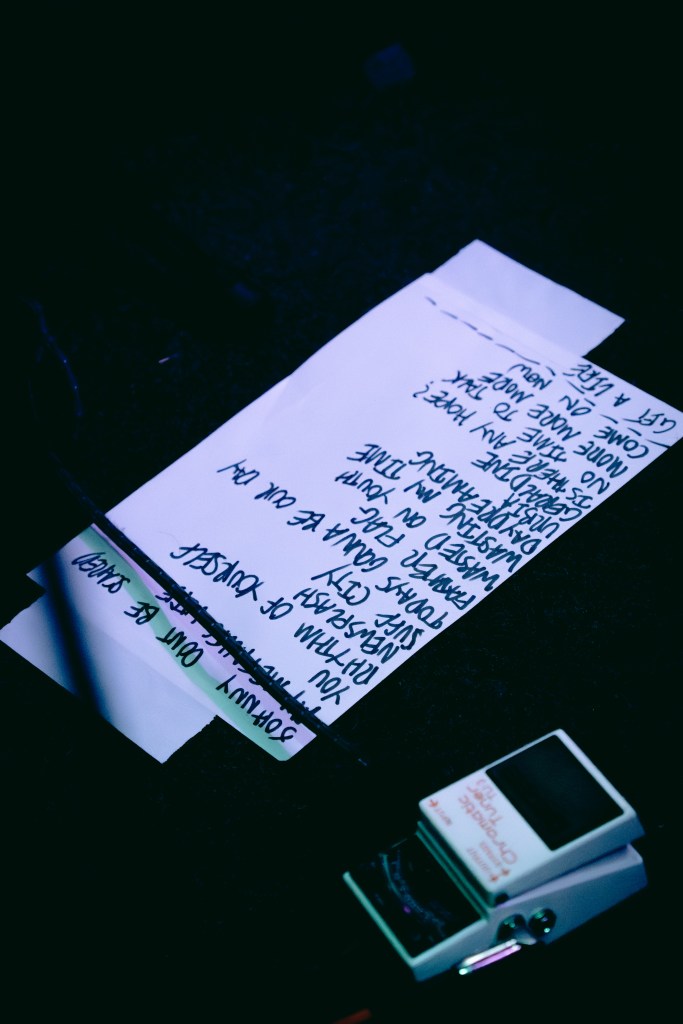 JOHNNY DONT BE SCARED
YOU
RHYTHM OF YOURSELF
NEWSFLASH
CITY
TODAYS GONNA BE OUR DAY
FLAG
WASTED ON YOUTH
WASTING MY TIME
DAYDREAMING
GERALDINE
IS THERE ANY HOPE?
NO TIME TO TALK
MORE MORE MORE
COME ON NOW
GET A LIFE
Chromatic
Tuner
TU-3